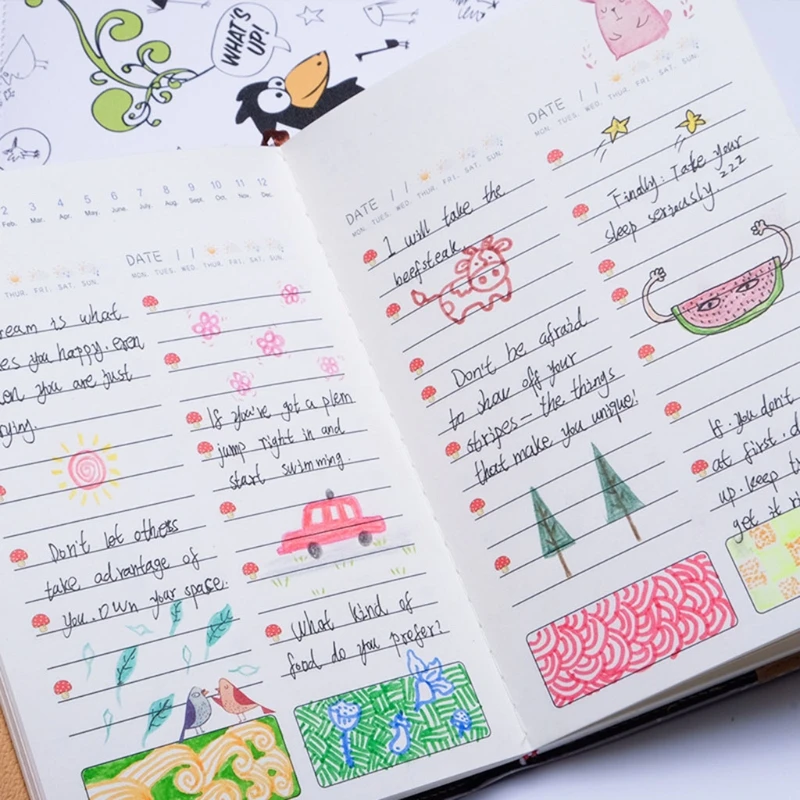 WHAT'S
UP!
2 3 4 5 6 7 8 9 10 11 12
Feb. Mar. Apr. May. June. July. Aug. Sep. Oct. Nov. Dec.
THUR. FRI. SAT. SUN.
ream is what
es you happy. even
en you are just
rying.
Don't let others
take advantage of
you. Own your space.
DATE / /
MON. TUES. WED. THUR. FRI. SAT. SUN.
If you've got a plem
jump right in and
start swimming.
What kind of
food do you prefer?
DATE / /
MON. TUES. WED. THUR. FRI. SAT. SUN.
I will take the
beefsteak.
Don't be afraid
to show off your
stripes— the things
that make you unique!
DATE / /
MON. TUES. WED. THUR. FRI. SAT. SUN.
Finally: Take your
sleep seriously. zzz
If. you don't
at first. d
up. keep t
get it ri